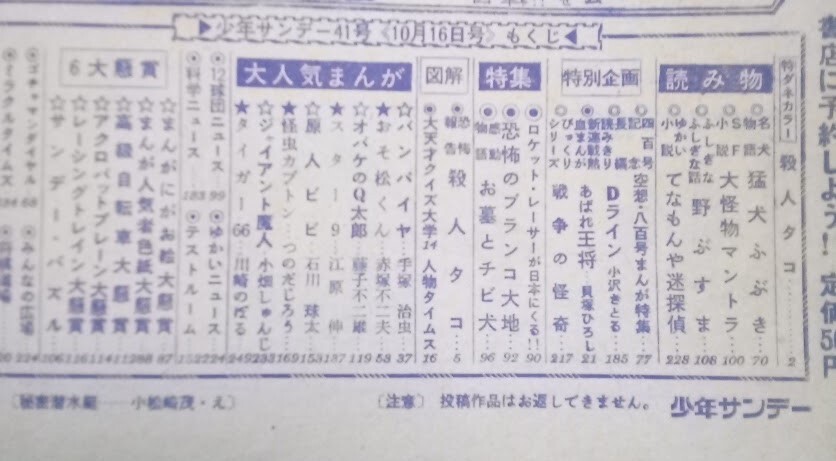 少年サンデー41号《10月16日号》もくじ
特ダネカラー
殺人タコ 2
読み物
名犬物語 猛犬ふぶき 70
SF小説 大怪物マントラ 100
ふしぎなふしぎな話 野ぶすま 108
ゆかい小説 てなもんや迷探偵 228
特別企画
四百号記念 空想・八百号まんが特集 77
長編読みきり Dライン 小沢さとる 185
新連載熱血まんが あばれ王将 貝塚ひろし 21
びっくりシリーズ 戦争の怪奇 217
特集
ロケット・レーサーが日本にくる!! 90
恐怖のブランコ大地 92
感動物語 お墓とチビ犬 96
図解
恐怖報告 殺人タコ 5
大天才クイズ大学 14 人物タイムス 16
大人気まんが
☆バンパイヤ 手塚治虫 37
★おそ松くん 赤塚不二夫 53
☆オバケのQ太郎 藤子不二雄 119
★スター9 江原伸 137
☆原人ビビ 石川球太 153
★怪虫カブトン つのだじろう 169
☆ジャイアント魔人 小畑しゅんじ 233
★タガー66 川崎のぼる 249
12球団ニュース 99
ゆかいニュース 224
科学ニュース 183
テストルーム 152
6大懸賞
☆まんがにがお絵大懸賞 87
☆まんが人気者色紙大懸賞 88
☆高級自転車大懸賞
☆アクロバットプレーン大懸賞
☆レーシングトレイン大懸賞 116
☆サンデー・パズル 106
ゴチャマンダイヤル 68
みんなの広場 224
ミラクルタイムズ 184
〔秘密潜水艇――小松崎茂・え〕
〔注意〕 投稿作品はお返しできません。 少年サンデー
定価50円